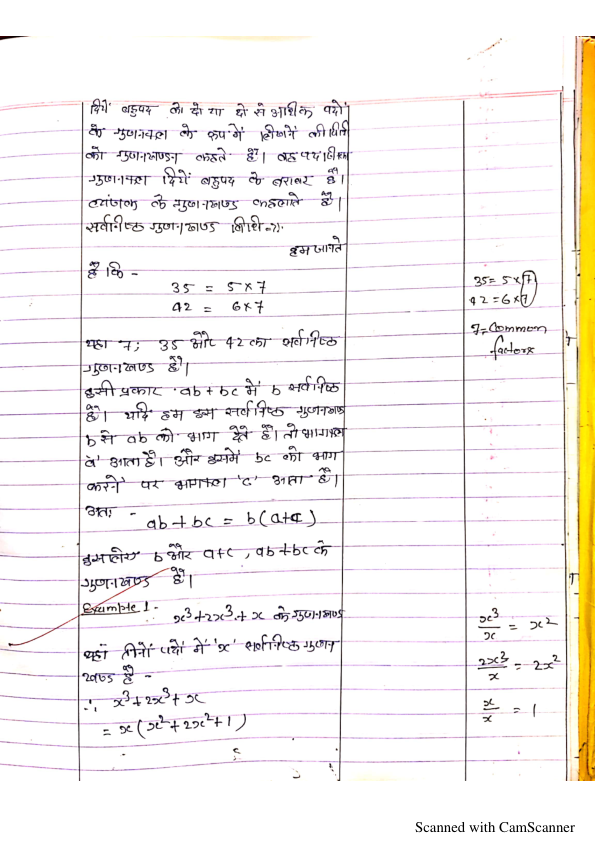 दिये बहुपद को दो या दो से अधिक पदों
के गुणनफल के रूप में लिखने की विधि
को गुणनखण्डन कहते है। बहुपद
गुणनफल दिये बहुपद के बराबर है।
व्यंजक के गुणनखण्ड कहलाते है।
सर्वनिष्ठ गुणनखण्ड विधि =>
हम जानते
है कि -
35 = 5×7
42 = 6×7
यहा 7; 35 और 42 का सर्वनिष्ठ
गुणनखण्ड है।
इसी प्रकार ab+bc में b सर्वनिष्ठ
है। यदि हम इस सर्वनिष्ठ गुणनखण्ड
b से ab को भाग देते है। तो भागफल
'a' आता है। और इसमें bc को भाग
करने पर भागफल 'c' आता है।
अतः -
ab+bc = b(a+c)
इसलिए b और a+c, ab+bc के
गुणनखण्ड है।
Example 1 -
x³+2x³+x के गुणनखण्ड
यहां तीनों पदों में 'x' सर्वनिष्ठ गुणन
खण्ड है -
∴ x³+2x³+x
= x(x²+2x²+1)
35= 5×7
42=6×7
7=Common
factors
x³/x = x²
2x³/x = 2x²
x/x = 1
Scanned with CamScanner